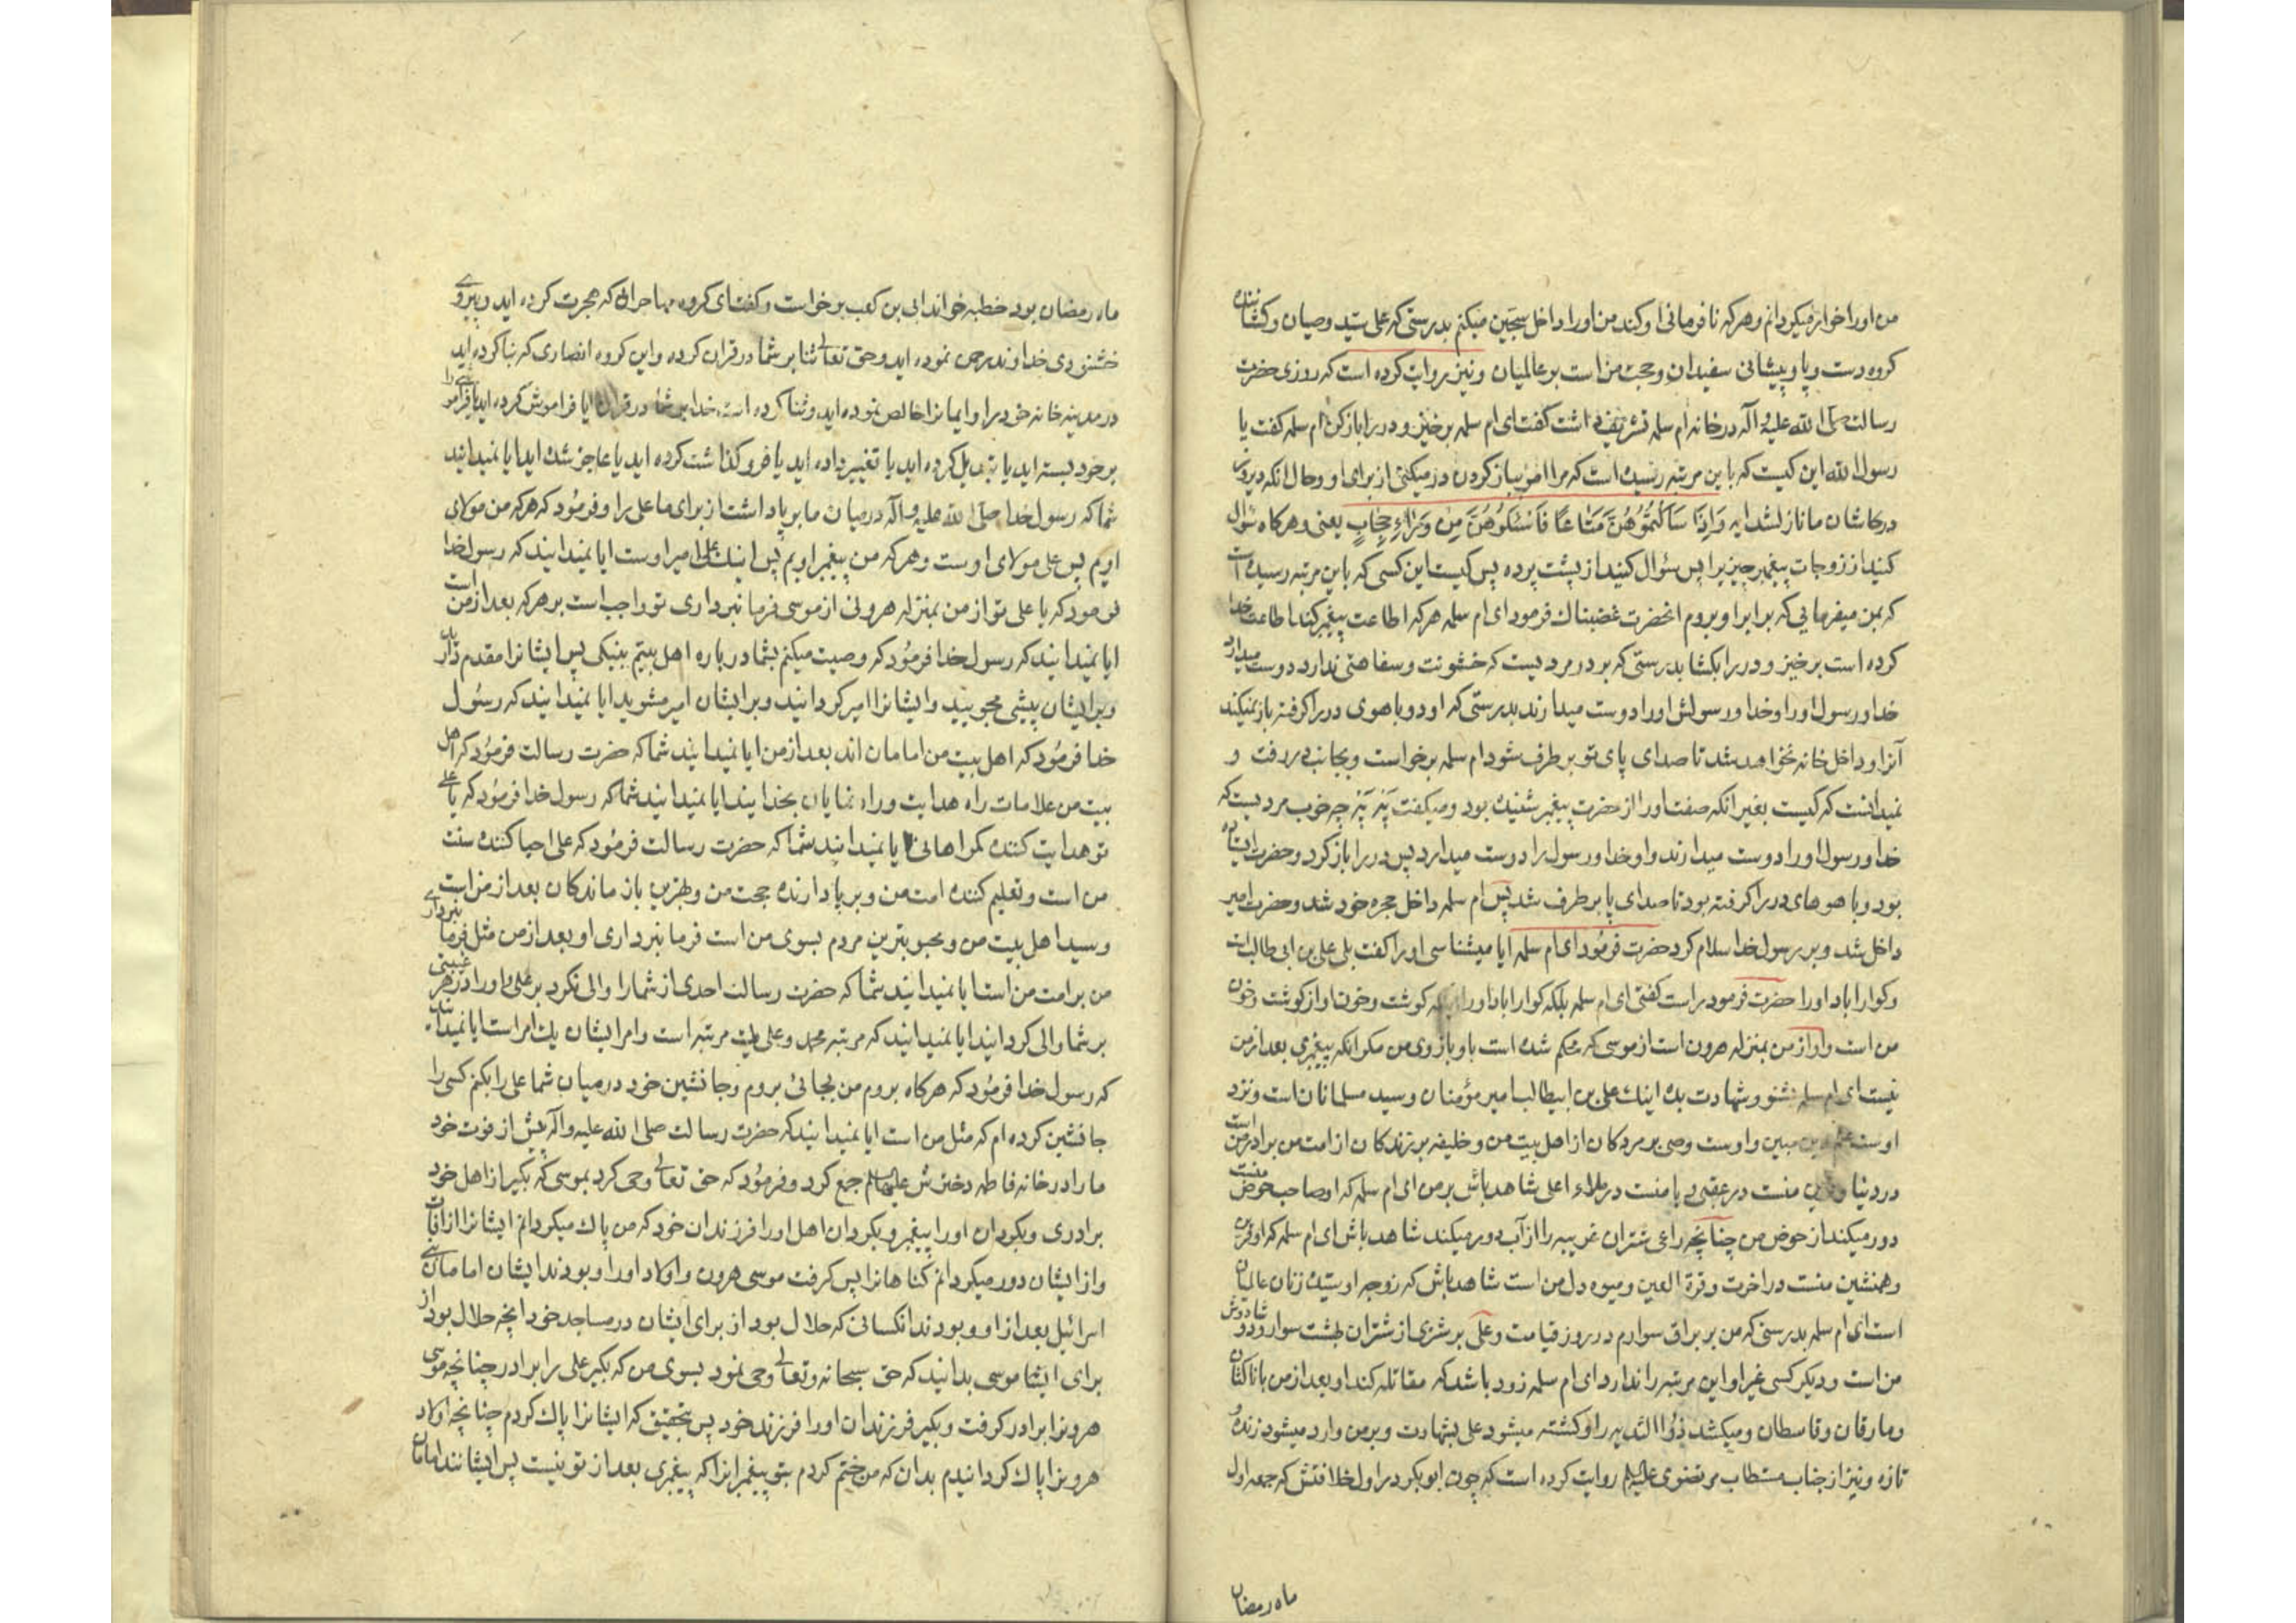 من اورا خوار میکردانم وهرکه نافرمانی او کند من اورا داخل سجّین میکنم بدرستی که علی سید وصیان وکشاننده
کروه دست و پا و پیشانی سفیدان وحجت من است بر عالمیان ونیز روایت کرده است که روزی حضرت
رسالت صلی الله علیه وآله در خانه ام سلمه تشریف داشت کفت ای ام سلمه برخیز و در را باز کن ام سلمه کفت یا
رسول الله این کیست که باین مرتبه رسیده است که مرا امر بباز کردن در میکنی از برای او وحال انکه دیروز
در شان ما نازل شد ایه وَاِذَا سَاَلْتُمُوُهُنَّ مَتَاعًا فَاسْئَلُوهُنَّ مِنْ وَرَاءِ حِجَابٍ یعنی وهرکاه سؤال
کنید از زوجات پیغمبر چیزیرا پس سئوال کنید از پشت پرده پس کیست این کسی که باین مرتبه رسیده است
که بمن میفرمایی که برابر او بروم انحضرت غضبناك فرمود ای ام سلمه هرکه اطاعت پیغمبر کند اطاعت خدا
کرده است برخیز ودر را بکشا بدرستی که بر در مردیست که خشونت وسفاهتی ندارد دوست میدارد
خدا ورسول اورا وخدا ورسولش اورا دوست میدارند بدرستی که او دو باهوی در را کرفته باز نمیکند
آنرا وداخل خانه نخواهد شد تا صدای پای تو برطرف شود ام سلمه برخواست وبجانب در رفت و
نمیدانست که کیست بغیر انکه صفت اورا از حضرت پیغمبر شنیده بود ومیکفت بَّخ بَّخ چه خوب مردیست که
خدا ورسول اورا دوست میدارند واو خدا ورسول را دوست میدارد پس در را باز کرد وحضرت ایستاده
بود وباهوهای در را کرفته بود تا صدای پا برطرف شد پس ام سلمه داخل حجره خود شد وحضرت امیر
داخل شد وبر رسول خدا سلام کرد حضرت فرمُود ای ام سلمه ایا میشناسی اورا کفت بلی علی بن ابی طالب است
وکوارا باد اورا حضرت فرمود راست کفتی ای ام سلمه بلکه کوارا باد اورا که کوشت وخون او از کوشت وخون
من است واو از من بمنزله هرون است از موسی که محکم شده است باو بازوی من مکر انکه پیغمبری بعد از من
نیست ای ام سلمه بشنو وشهادت بده اینك علی بن ابیطالب امیر مؤمنان وسید مسلمانان است ونزد
اوست علم دین مبین واوست وصی بر مردکان از اهل بیت من وخلیفه بر زندکان از امت من برادر من است
در دنیا و منست در عقبی با منست در ملاء اعلی شاهد باش بر من ای ام سلمه که او صاحب حوض منست
دور میکند از حوض من چنانچه راعی شتران غریبه را از آب دور میکند شاهد باش ای ام سلمه که او قرین
وهمنشین منست در اخرت وقرة العین ومیوه دل من است شاهد باش که زوجه او سیده زنان عالمیان
است ای ام سلمه بدرستی که من بر براق سوارم در روز قیامت وعلی بر شتری از شتران بهشت سوار ودوشادوش
من است ودیکر کسی غیر او این مرتبه را ندارد ای ام سلمه زود باشد که مقاتله کند او بعد از من با ناکثان
ومارقان وقاسطان ومیکشد ذوُا الثدیه را وکشته میشود علی بشهادت وبر من وارد میشود زنده و
تازه ونیز از جناب مستطاب مرتضوی علیه السلم روایت کرده است که چون ابو بکر در اول خلافتش که جمعه اول
ماه رمضان
ماه رمضان بود خطبه خواند ابی بن کعب برخواست وکفت ای کروه مهاجران که هجرت کرده اید وپیروی
خشنودی خداوند رحمن نموده اید وحق تعالی ثنا بر شما در قران کرده واین کروه انصاری که بنا کرده اید
در مدینه خانه خود را وایمانرا خالص نموده اید وثنا کرده است خدا بر شما در قران ایا فراموش کرده اید یا فراموشی را
بر خود بسته اید یا تبدیل کرده اید یا تغییر داده اید یا فروکذاشت کرده اید یا عاجز شده اید ایا نمیدانید
شما که رسول خدا صلی الله علیه وآله در میان ما بر پا داشت از برای ما علی را وفرمُود که هرکه من مولای
اویم پس علی مولای اوست وهرکه من پیغمبر اویم پس اینك علی امیر اوست ایا نمیدانید که رسول خدا
فرمود که یا علی تو از من بمنزله هرونی از موسی فرمانبرداری تو واجب است بر هرکه بعد از من است
ایا نمیدانید که رسول خدا فرمُود که وصیت میکنم بشما درباره اهل بیتم بنیکی پس ایشانرا مقدم دارید
وبر ایشان پیشی مجویید وایشانرا امیر کردانید وبر ایشان امیر مشوید ایا نمیدانید که رسُول
خدا فرمُود که اهل بیت من امامان اند بعد از من ایا نمیدانید شما که حضرت رسالت فرمُود که اهل
بیت من علامات راه هدایت وراه نمایان بخدایند ایا نمیدانید شما که رسول خدا فرمُود که یا علی
تو هدایت کننده کمراهانی ایا نمیدانید شما که حضرت رسالت فرمُود که علی احیا کننده سنت
من است وتعلیم کننده امت من وبر پا دارنده حجت من وبهترین باز ماندکان بعد از من است
وسید اهل بیت من ومحبوبترین مردم بسوی من است فرمانبرداری او بعد از من مثل فرمانبرداری
من بر امت من است ایا نمیدانید شما که حضرت رسالت احدی از شما را والی نکرد بر علی واورا در هر غیبتی
بر شما والی کردانید ایا نمیدانید که مرتبه محمد وعلی یك مرتبه است وامر ایشان یك امر است ایا نمیدانید
که رسول خدا فرمُود که هرکاه بروم من بجائی بروم وجانشین خود در میان شما علی را بکنم کسی را
جانشین کرده ام که مثل من است ایا نمیدانید که حضرت رسالت صلی الله علیه وآله پیش از فوت خود
ما را در خانه فاطمه دخترش علیها السلم جمع کرد وفرمُود که حق تعالی وحی کرد بموسی که بکیر از اهل خود
برادری وبکردان اورا پیغمبر وبکردان اهل اورا فرزندان خود که من پاك میکردانم ایشانرا از افات
واز ایشان دور میکردانم کناهانرا پس کرفت موسی هرون واولاد اورا وبودند ایشان امامان بنی
اسرائیل بعد از او وبودند انکسانی که حلال بود از برای ایشان در مساجد خود انچه حلال بود از
برای ایشا موسی بدانید که حق سبحانه وتعالی وحی نمود بسوی من که بکیر علی را برادر چنانچه موسی
هرونرا برادر کرفت وبکیر فرزندان اورا فرزند خود پس بتحقیق که ایشانرا پاك کردم چنانچه اولاد
هرونرا پاك کردانیدم بدان که من ختم کردم بتو پیغمبرانرا که پیغمبری بعد از تو نیست پس ایشانند امامان